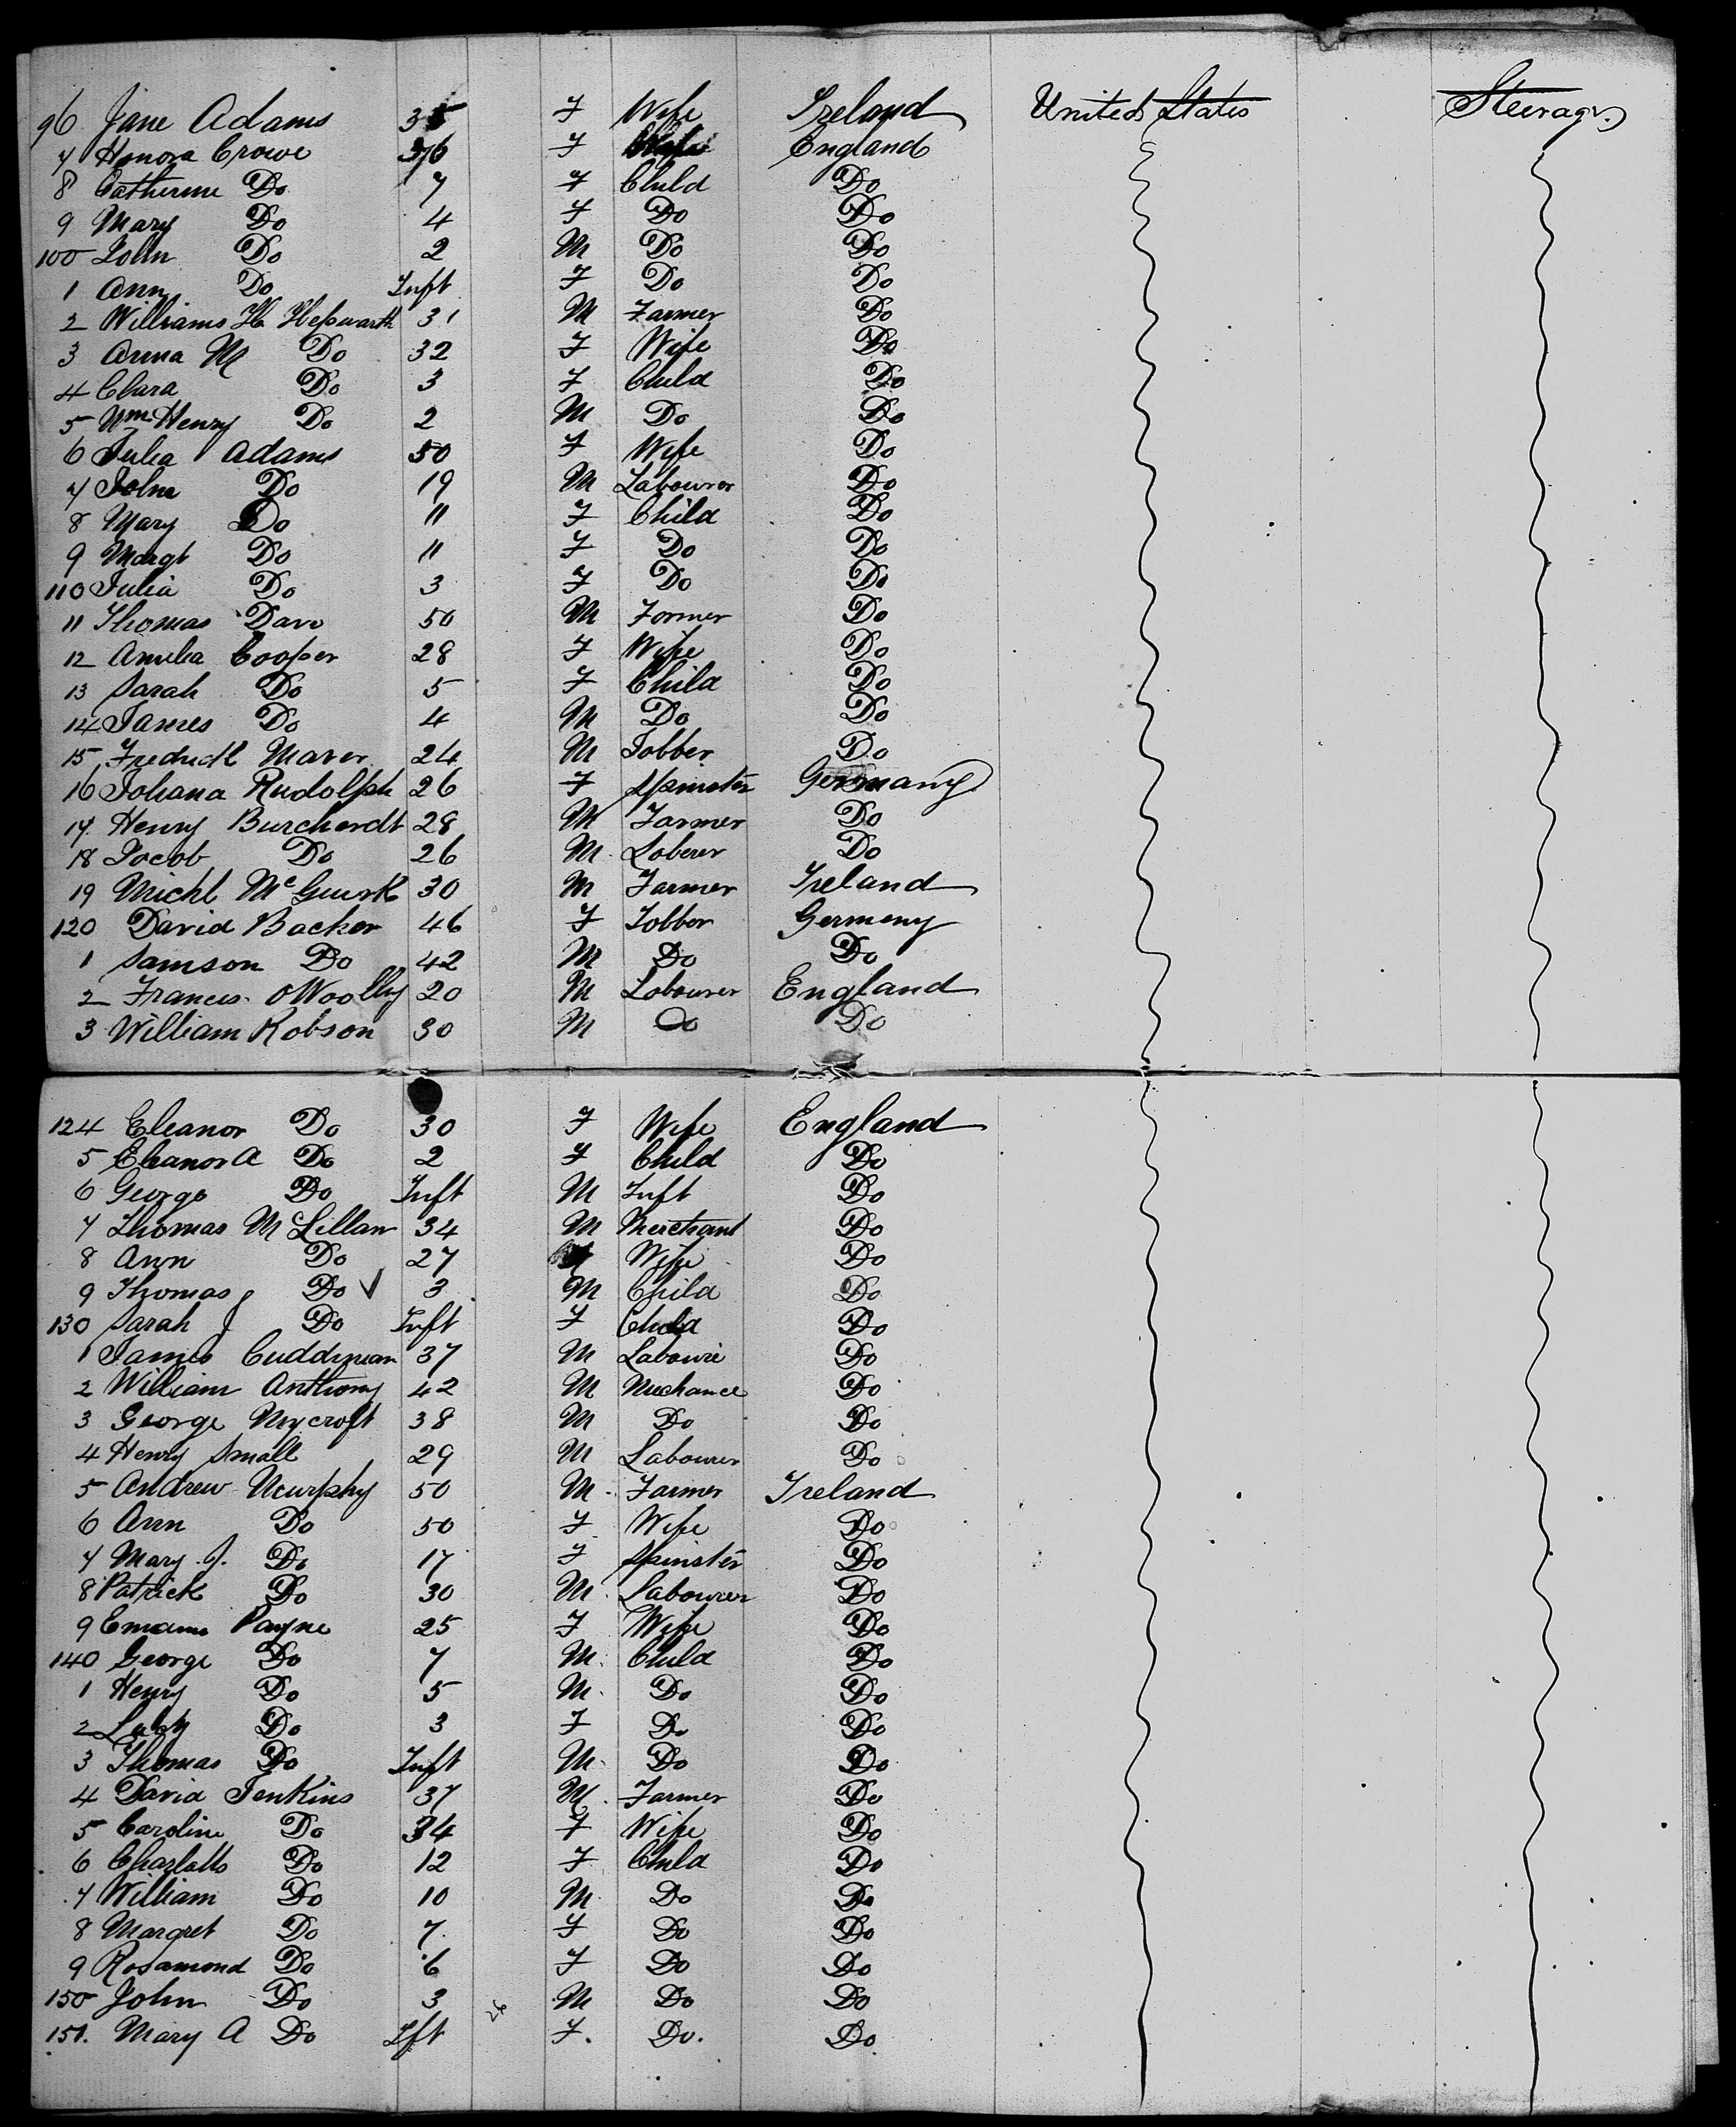 96 Jane Adams 35 F Wife Ireland United States Steerage
7 Honora Crowe 36 F Wife England
8 Catherine Do 7 F Child Do
9 Mary Do 4 F Do Do
100 John Do 2 M Do Do
1 Ann Do Inft F Do Do
2 Williams H Hepwarth 31 M Farmer Do
3 Anna M Do 32 F Wife Do
4 Clara Do 3 F Child Do
5 Wm Henry Do 2 M Do Do
6 Julia Adams 50 F Wife Do
7 John Do 19 M Labourer Do
8 Mary Do 11 F Child Do
9 Margt Do 11 F Do Do
110 Julia Do 3 F Do Do
11 Thomas Dave 50 M Farmer Do
12 Amelia Cooper 28 F Wife Do
13 Sarah Do 5 F Child Do
14 James Do 4 M Do Do
15 Fredrick Maver 24 M Jobber Do
16 Johana Rudolph 26 F Spinster Germany
17 Henry Burcherdt 28 M Farmer Do
18 Jacob Do 26 M Loberer Do
19 Michl McGuirk 30 M Farmer Ireland
120 David Backer 46 F Jobber Germeny
1 Samson Do 42 M Do Do
2 Francis OWoolly 20 M Labourer England
3 William Robson 30 M Do Do
124 Eleanor Do 30 F Wife England
5 Eleanor A Do 2 F Child Do
6 George Do Inft M Inft Do
7 Thomas McLellan 34 M Merchant Do
8 Ann Do 27 Wife Do
9 Thomas Do ✓ 3 M Child Do
130 Sarah J Do Inft F Child Do
1 James Cuddinean 37 M Laboure Do
2 William Anthony 42 M Mechance Do
3 George Mycroft 38 M Do Do
4 Henry Small 29 M Labourer Do
5 Andrew Murphy 50 M Farmer Ireland
6 Ann Do 50 F Wife Do
7 Mary J. Do 17 F Spinster Do
8 Patrick Do 30 M Labourer Do
9 Payne 25 F Wife Do
140 George Do 7 M Child Do
1 Henry Do 5 M Do Do
2 Do 3 F Do Do
3 Thomas Do Inft M Do Do
4 David Jenkins 37 M Farmer Do
5 Caroline Do 34 F Wife Do
6 Charlotte Do 12 F Child Do
7 William Do 10 M Do Do
8 Margret Do 7 F Do Do
9 Rosamond Do 6 F Do Do
150 John Do 3 M Do Do
151. Mary A Do Ift F. Do. Do